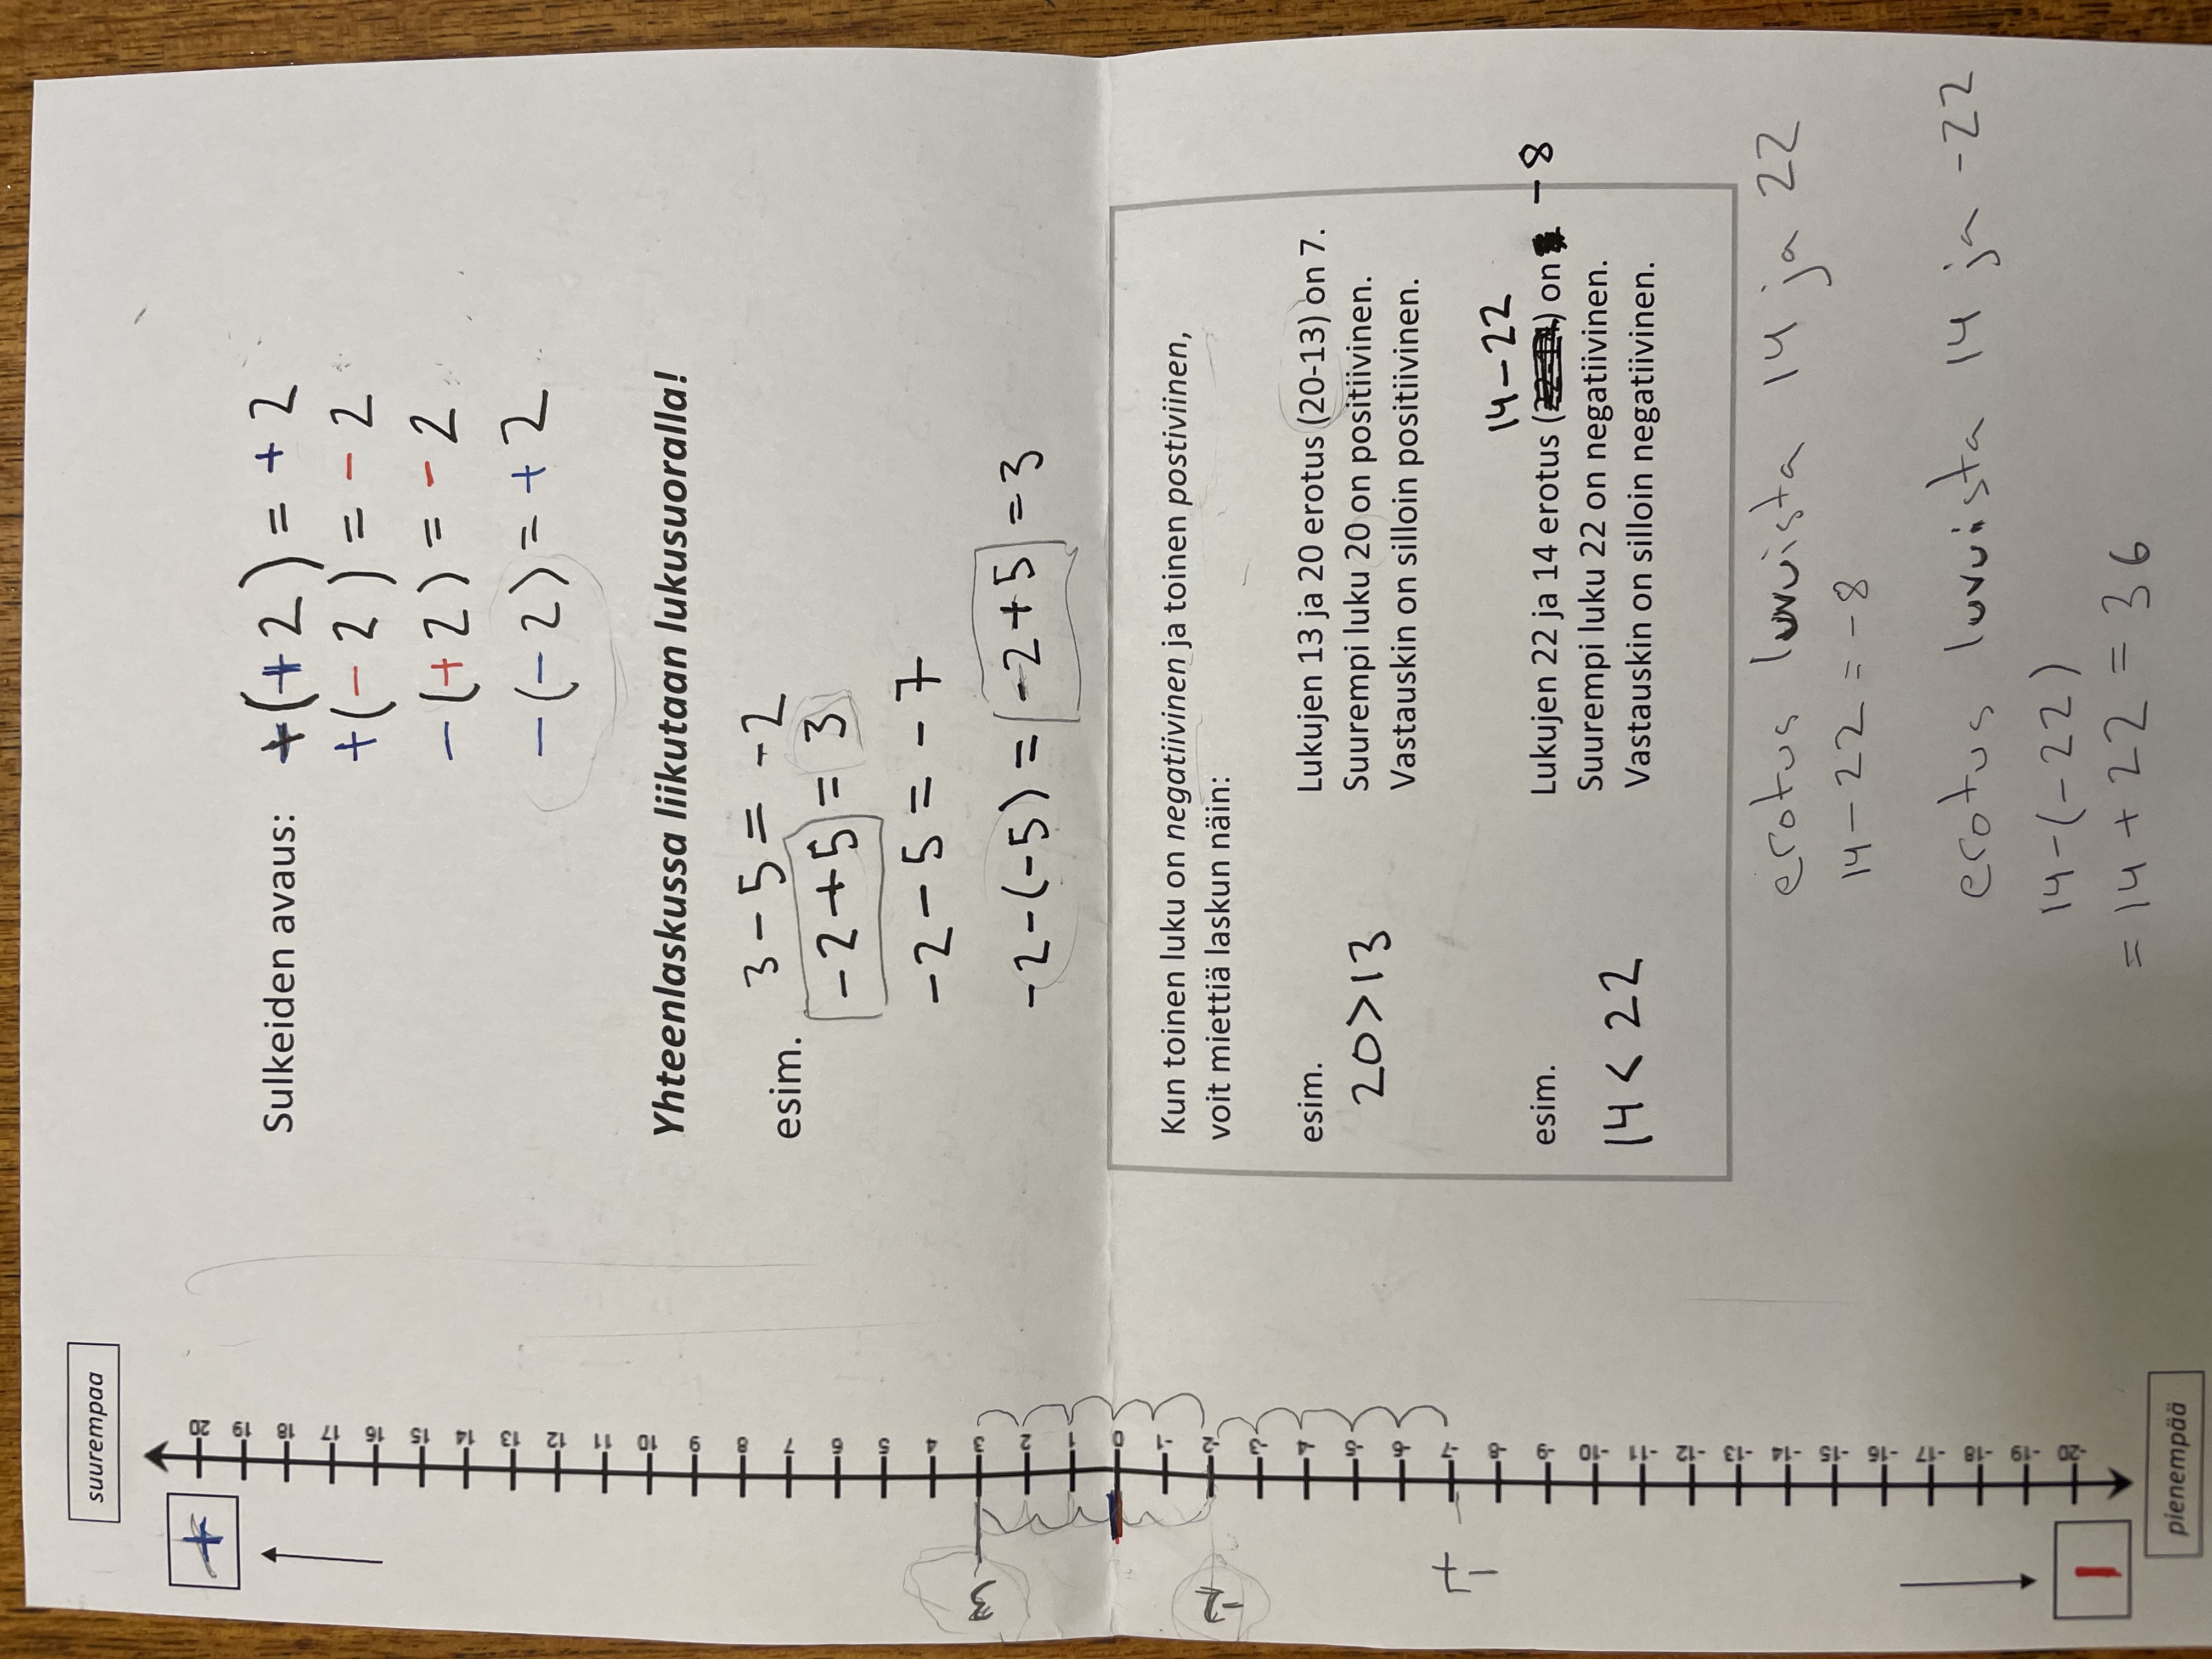 suurempaa
+
20
19
18
17
16
15
14
13
12
11
10
9
8
7
6
5
4
3
2
1
0
-1
-2
-3
-4
-5
-6
-7
-8
-9
-10
-11
-12
-13
-14
-15
-16
-17
-18
-19
-20
3
-2
+
-
-
pienempää
Sulkeiden avaus:
+(+2) = +2
+(-2) = -2
-(+2) = -2
-(-2) = +2
Yhteenlaskussa liikutaan lukusuoralla!
esim.
3-5 = -2
-2+5 = 3
-2-5 = -7
-2-(-5) = -2+5 = 3
Kun toinen luku on negatiivinen ja toinen postiviinen,
voit miettiä laskun näin:
esim.
Lukujen 13 ja 20 erotus (20-13) on 7.
20>13
Suurempi luku 20 on positiivinen.
Vastauskin on silloin positiivinen.
14-22
esim.
Lukujen 22 ja 14 erotus ( ) on -8
14 < 22
Suurempi luku 22 on negatiivinen.
Vastauskin on silloin negatiivinen.
erotus luvuista 14 ja 22
14-22 = -8
erotus luvuista 14 ja -22
14-(-22)
= 14 + 22 = 36